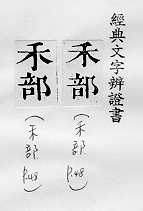 經典文字辨證書
禾部
禾部
(禾部 P.48)
(禾部 P.48)